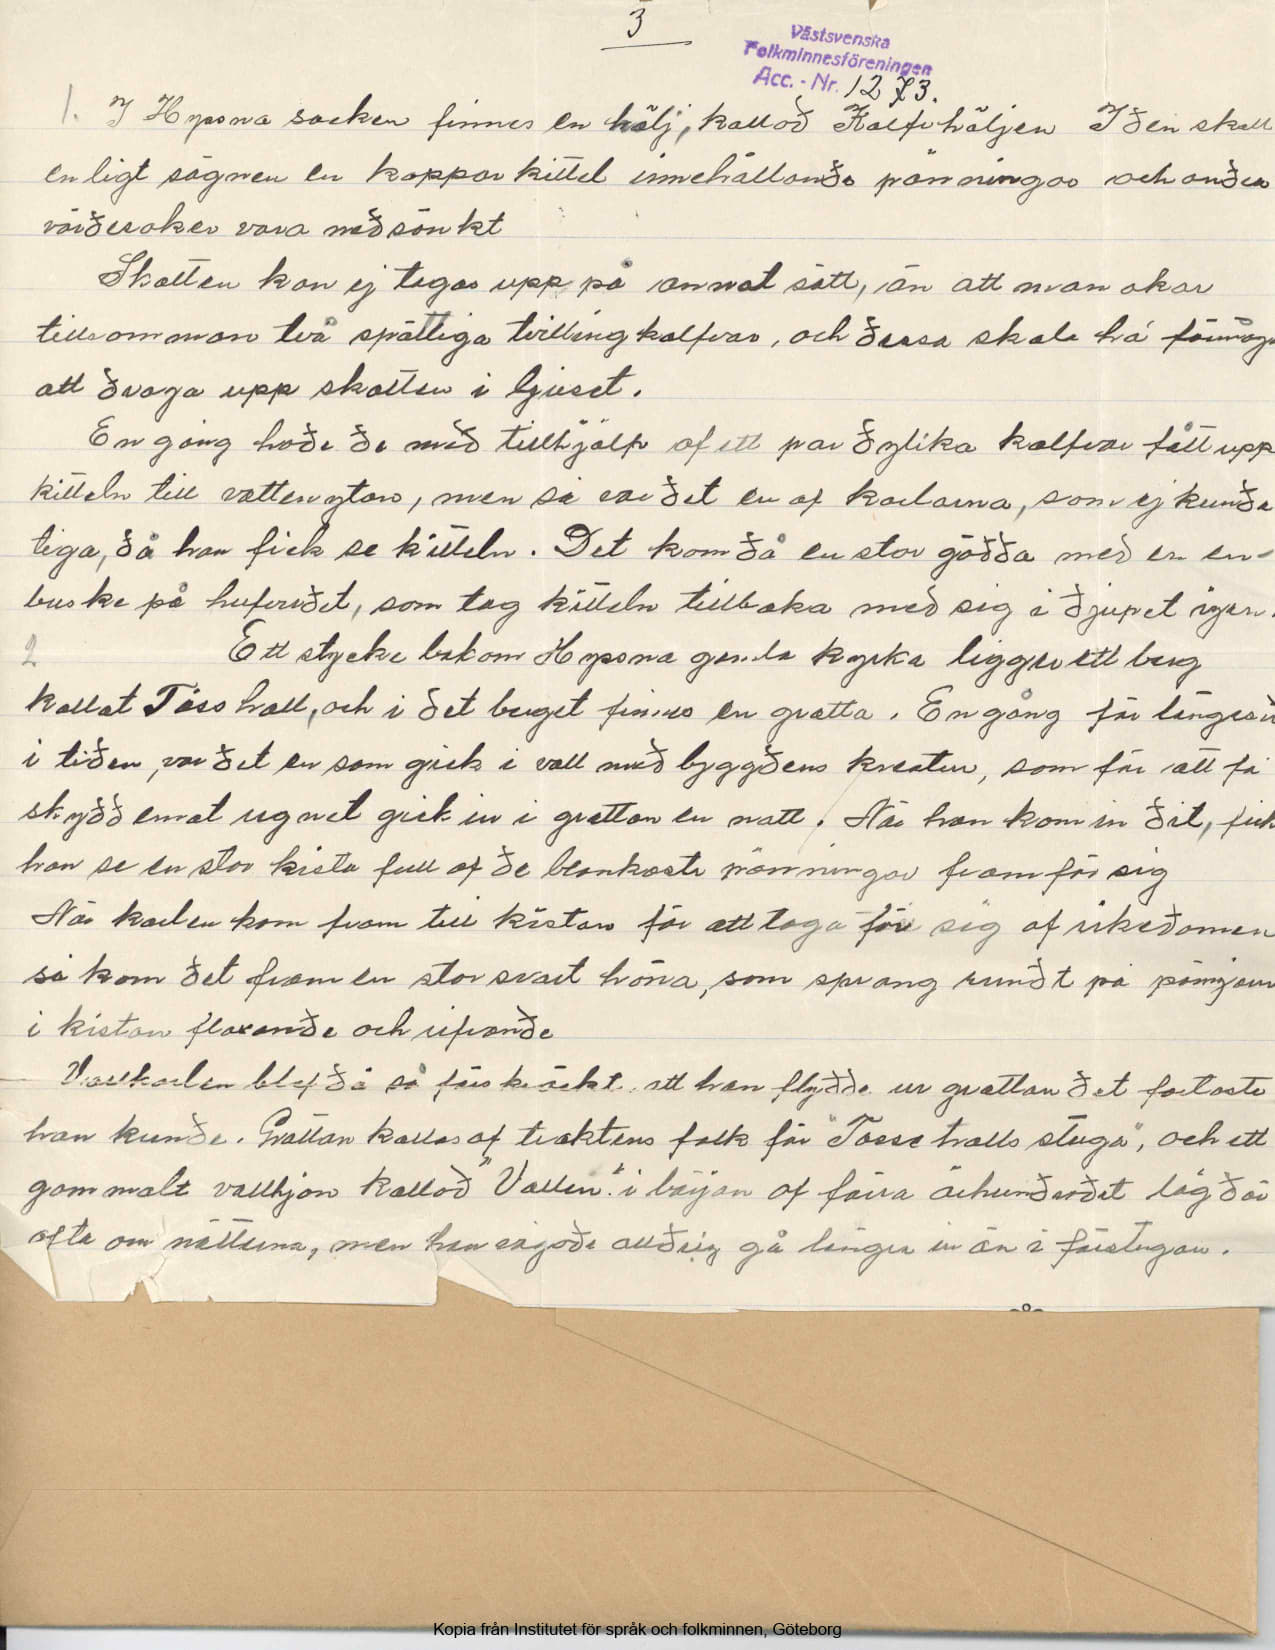 3
Västsvenska
Folkminnesföreningen
Acc. - Nr. 1273.
1. I Hyssna socken finnes en hölj, kallad Kalfvhöljen I den skall
enligt sägnen en kopparkittel innehållande pänningar och andra
värdesaker vara nedsänkt
Skatten kan ej tagas upp på annat sätt, än att man akar
tillsamman två spättiga tvillingkalfvar, och dessa skola ha förmåga
att draga upp skatten i ljuset.
En gång hade de med tillhjälp af ett par dylika kalfvar fått upp
kitteln till vattenytan, men så var det en af karlarna, som ej kunde
tiga, då han fick se kitteln. Det kom då en stor gädda med en en-
buske på hufvudet, som tog kitteln tillbaka med sig i djupet igen.
2 Ett stycke bakom Hyssna gamla kyrka ligger ett berg
kallat Tåss hall, och i det berget finnes en grotta. En gång för länge sed
i tiden, var det en som gick i vall med byggdens kreatur, som för att få
skydd emot ugnet gick in i grottan en natt. När han kom in dit, fick
han se en stor kista full af de blankaste pänningar framför sig
När karlen kom fram till kistan för att taga för sig af rikedomen
så kom det fram en stor svart höna, som sprang rundt på pängarn
i kistan flaxande och rifvande
Vallkarlen blef då så förskräckt att han flydde ur grottan det fortaste
han kunde. Grottan kallas af traktens folk för "Tosse halls stuga", och ett
gammalt vallhjon kallad "Vallen" i början af förra århundradet låg där
ofta om nätterna, men han vågade alldrig gå längre in än i förstugan.
Kopia från Institutet för språk och folkminnen, Göteborg